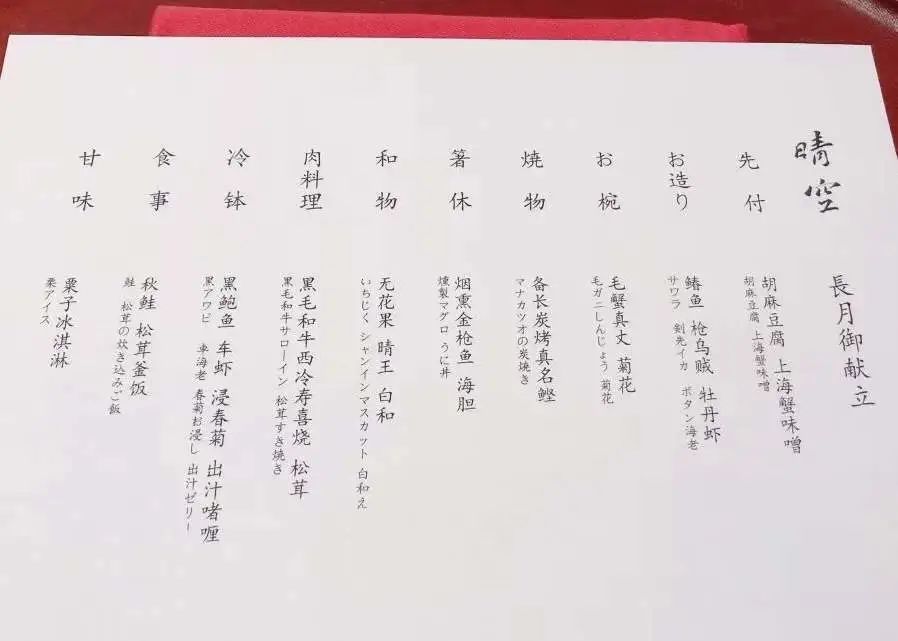 晴空
長月御献立
先付
胡麻豆腐 上海蟹味噌
胡麻豆腐 上海蟹味噌
お造り
鰆鱼 枪乌贼 牡丹虾
サワラ 剣先イカ ボタン海老
お椀
毛蟹真丈 菊花
毛ガニしんじょう 菊花
焼物
备长炭烤真名鲣
マナカツオの炭焼き
箸休
烟熏金枪鱼 海胆
燻製マグロ うに丼
和物
无花果 晴王 白和
いちじく シャンインマスカット 白和え
肉料理
黑毛和牛西冷寿喜烧 松茸
黒毛和牛サローイン 松茸すき焼き
冷钵
黑鲍鱼 车虾 浸春菊 出汁啫喱
黒アワビ 車海老 春菊お浸し 出汁ゼリー
食事
秋鲑 松茸釜饭
鮭 松茸の炊き込みご飯
甘味
栗子冰淇淋
栗アイス